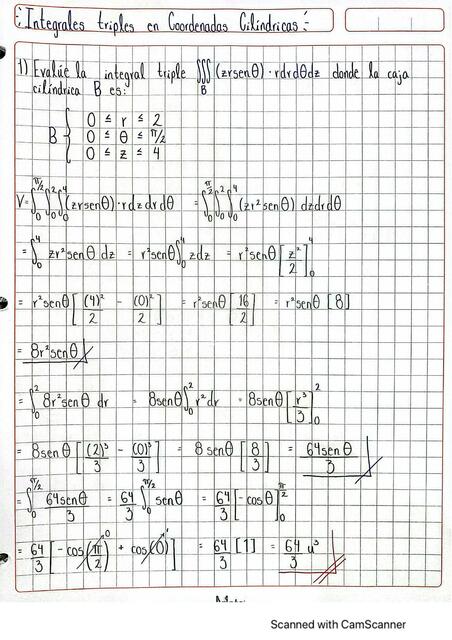 Integrales triples en Coordenadas Cilíndricas:
1) Evalúe la integral triple ∭_B (zrsenθ)·rdrdθdz donde la caja
cilíndrica B es:
B { 0 ≤ r ≤ 2
0 ≤ θ ≤ π/2
0 ≤ z ≤ 4
V= ∫_0^{π/2} ∫_0^2 ∫_0^4 (zrsenθ)·rdzdrdθ = ∫_0^{π/2} ∫_0^2 ∫_0^4 (zr²senθ) dzdrdθ
= ∫_0^4 zr²senθ dz = r²senθ ∫_0^4 zdz = r²senθ [z²/2]_0^4
= r²senθ [(4)²/2 - (0)²/2] = r²senθ [16/2] = r²senθ [8]
= 8r²senθ
= ∫_0^2 8r²senθ dr = 8senθ ∫_0^2 r²dr = 8senθ [r³/3]_0^2
= 8senθ [(2)³/3 - (0)³/3] = 8senθ [8/3] = 64senθ/3
= ∫_0^{π/2} 64senθ/3 = 64/3 ∫_0^{π/2} senθ = 64/3 [-cosθ]_0^{π/2}
= 64/3 [-cos(π/2)^0 + cos(0)^1] = 64/3 [1] = 64/3 u³
Scanned with CamScanner